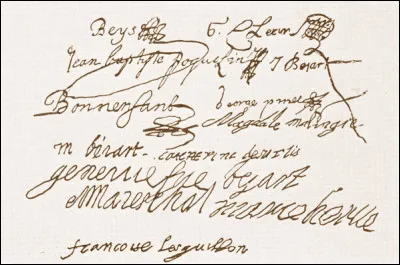 Beys G. Clerin
Jean baptiste poquelin J Bejart
Bonnenfant george pinel
Magdale malingre
M beiart. catherine desurlis
geneviefve bejart
AMareschal
francoise lesguillon